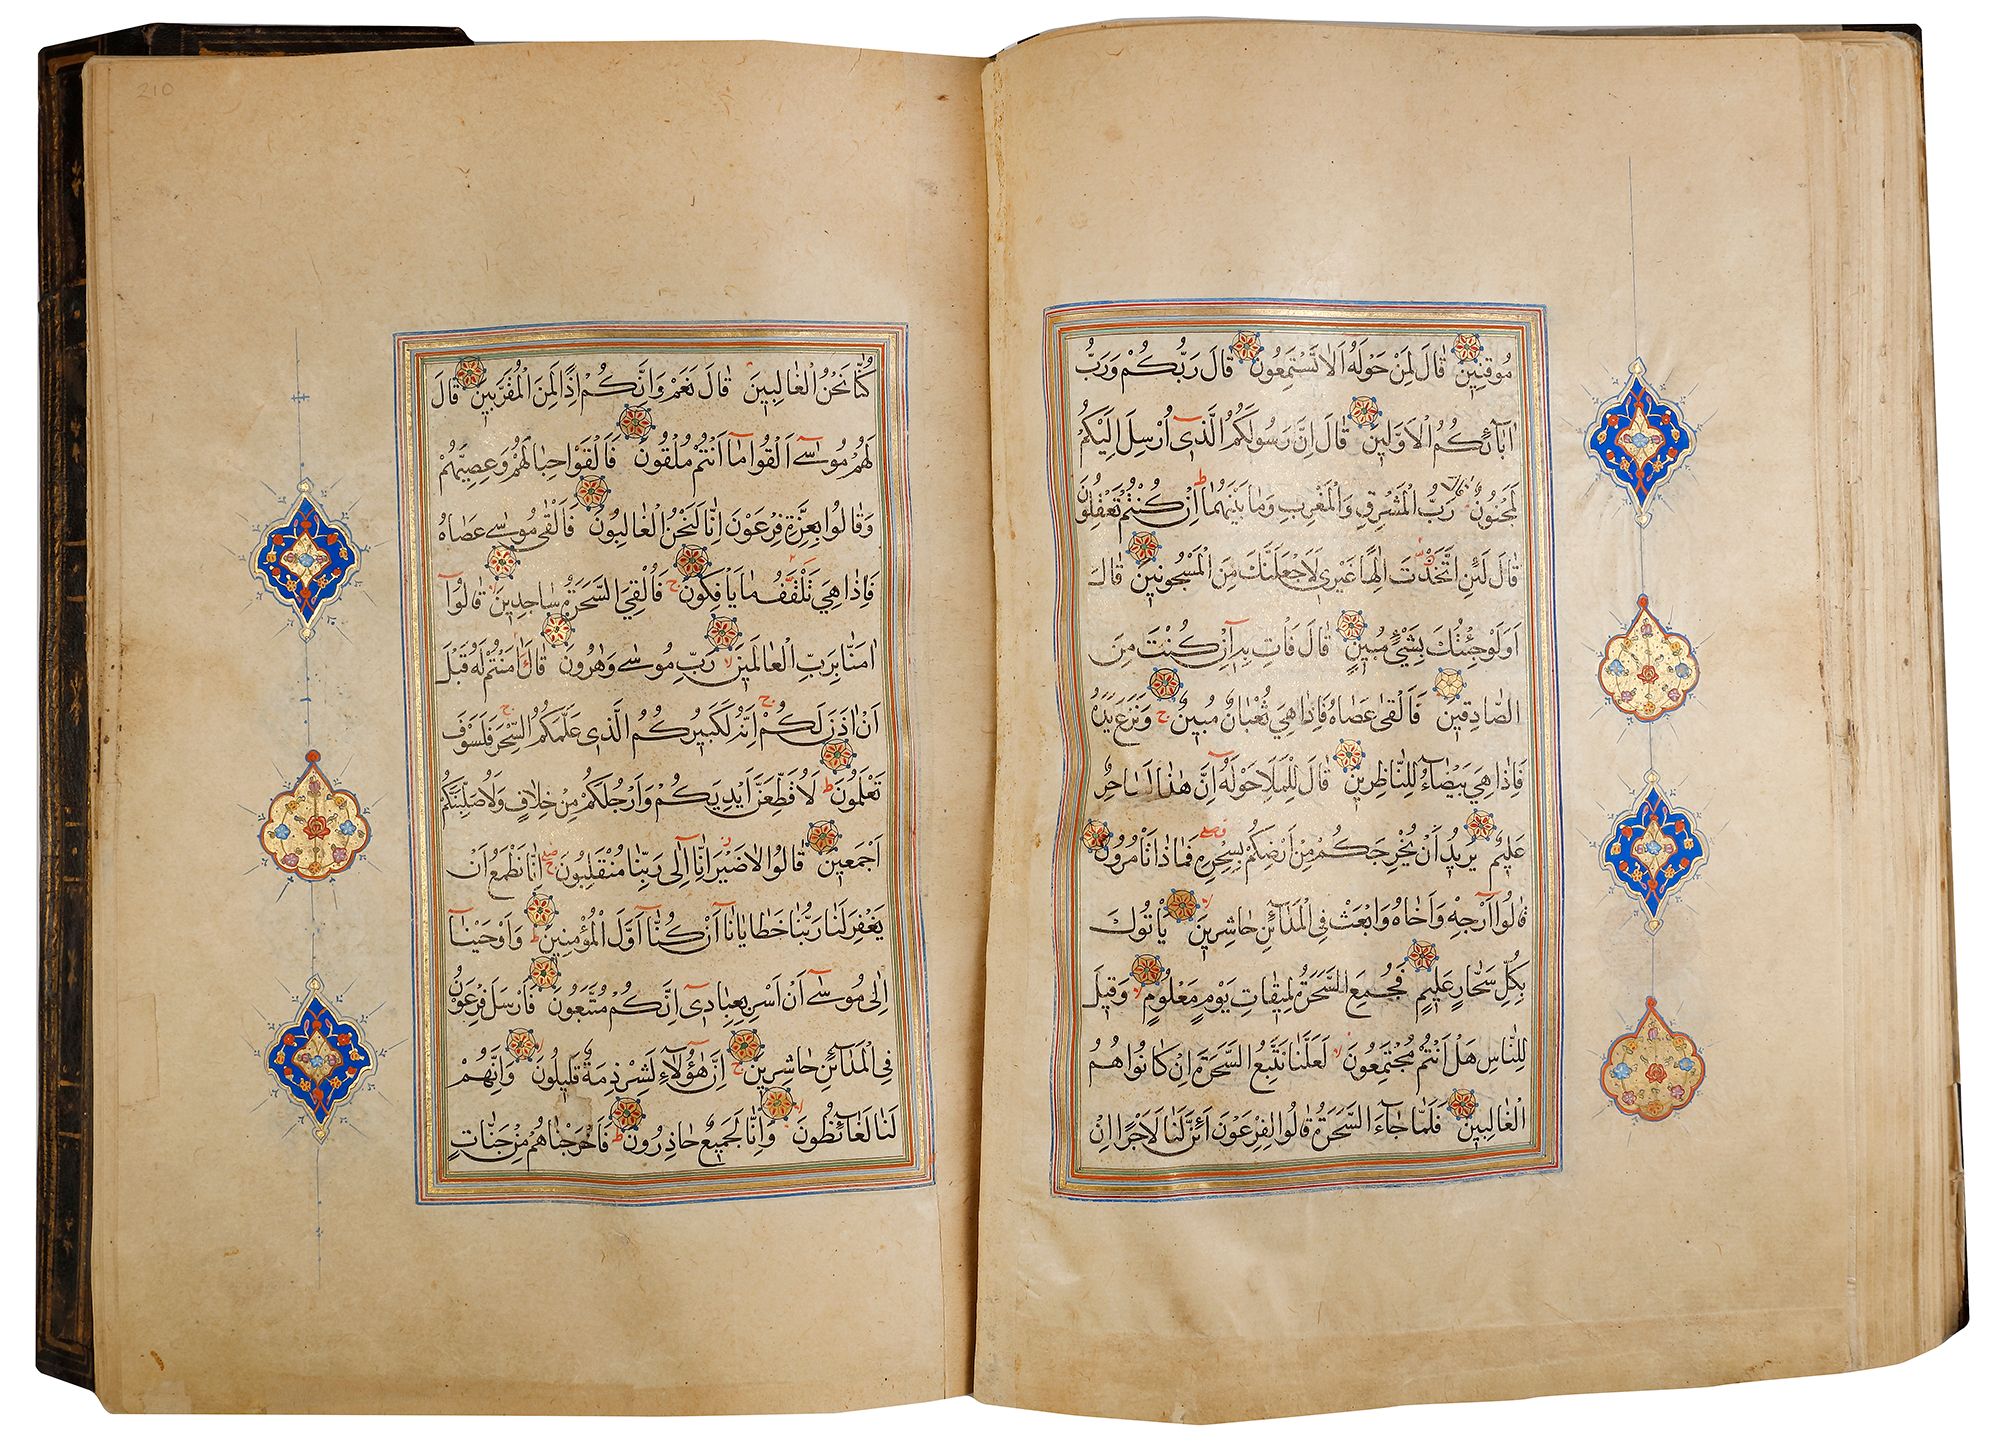 مُوقِنِينَ قَالَ لِمَنْ حَوْلَهُ اَلَا تَسْتَمِعُونَ قَالَ رَبُّكُمْ وَرَبُّ
اٰبَآئِكُمُ الْاَوَّلِينَ قَالَ اِنَّ رَسُولَكُمُ الَّذِي اُرْسِلَ اِلَيْكُمْ
لَمَجْنُونٌ رَبُّ الْمَشْرِقِ وَالْمَغْرِبِ وَمَا بَيْنَهُمَا اِنْ كُنْتُمْ تَعْقِلُونَ
قَالَ لَئِنِ اتَّخَذْتَ اِلٰهًا غَيْرِي لَاَجْعَلَنَّكَ مِنَ الْمَسْجُونِينَ قَالَ
اَوَلَوْ جِئْتُكَ بِشَيْءٍ مُبِينٍ قَالَ فَاْتِ بِهِ اِنْ كُنْتَ مِنَ
الصَّادِقِينَ فَاَلْقٰى عَصَاهُ فَاِذَا هِيَ ثُعْبَانٌ مُبِينٌ ج وَنَزَعَ يَدَهُ
فَاِذَا هِيَ بَيْضَآءُ لِلنَّاظِرِينَ قَالَ لِلْمَلَاِ حَوْلَهُ اِنَّ هٰذَا لَسَاحِرٌ
عَلِيمٌ يُرِيدُ اَنْ يُخْرِجَكُمْ مِنْ اَرْضِكُمْ بِسِحْرِهِ فَمَاذَا تَاْمُرُونَ
قَالُوا اَرْجِهْ وَاَخَاهُ وَابْعَثْ فِي الْمَدَآئِنِ حَاشِرِينَ لا يَاْتُوكَ
بِكُلِّ سَحَّارٍ عَلِيمٍ فَجُمِعَ السَّحَرَةُ لِمِيقَاتِ يَوْمٍ مَعْلُومٍ لا وَقِيلَ
لِلنَّاسِ هَلْ اَنْتُمْ مُجْتَمِعُونَ لا لَعَلَّنَا نَتَّبِعُ السَّحَرَةَ اِنْ كَانُوا هُمُ
الْغَالِبِينَ فَلَمَّا جَآءَ السَّحَرَةُ قَالُوا لِفِرْعَوْنَ اَئِنَّ لَنَا لَاَجْرًا اِنْ
210
كُنَّا نَحْنُ الْغَالِبِينَ قَالَ نَعَمْ وَاِنَّكُمْ اِذًا لَمِنَ الْمُقَرَّبِينَ قَالَ
لَهُمْ مُوسٰى اَلْقُوا مَا اَنْتُمْ مُلْقُونَ فَاَلْقَوْا حِبَالَهُمْ وَعِصِيَّهُمْ
وَقَالُوا بِعِزَّةِ فِرْعَوْنَ اِنَّا لَنَحْنُ الْغَالِبُونَ فَاَلْقٰى مُوسٰى عَصَاهُ
فَاِذَا هِيَ تَلْقَفُ مَا يَاْفِكُونَ ج فَاُلْقِيَ السَّحَرَةُ سَاجِدِينَ لا قَالُوا
اٰمَنَّا بِرَبِّ الْعَالَمِينَ لا رَبِّ مُوسٰى وَهٰرُونَ قَالَ اٰمَنْتُمْ لَهُ قَبْلَ
اَنْ اٰذَنَ لَكُمْ ج اِنَّهُ لَكَبِيرُكُمُ الَّذِي عَلَّمَكُمُ السِّحْرَ ج فَلَسَوْفَ
تَعْلَمُونَ ط لَاُقَطِّعَنَّ اَيْدِيَكُمْ وَاَرْجُلَكُمْ مِنْ خِلَافٍ وَلَاُصَلِّبَنَّكُمْ
اَجْمَعِينَ قَالُوا لَا ضَيْرَ اِنَّا اِلٰى رَبِّنَا مُنْقَلِبُونَ ج اِنَّا نَطْمَعُ اَنْ
يَغْفِرَ لَنَا رَبُّنَا خَطَايَانَا اَنْ كُنَّا اَوَّلَ الْمُؤْمِنِينَ ط وَاَوْحَيْنَا
اِلٰى مُوسٰى اَنْ اَسْرِ بِعِبَادِي اِنَّكُمْ مُتَّبَعُونَ فَاَرْسَلَ فِرْعَوْنُ
فِي الْمَدَآئِنِ حَاشِرِينَ ج اِنَّ هٰؤُلَآءِ لَشِرْذِمَةٌ قَلِيلُونَ لا وَاِنَّهُمْ
لَنَا لَغَآئِظُونَ لا وَاِنَّا لَجَمِيعٌ حَاذِرُونَ ط فَاَخْرَجْنَاهُمْ مِنْ جَنَّاتٍ